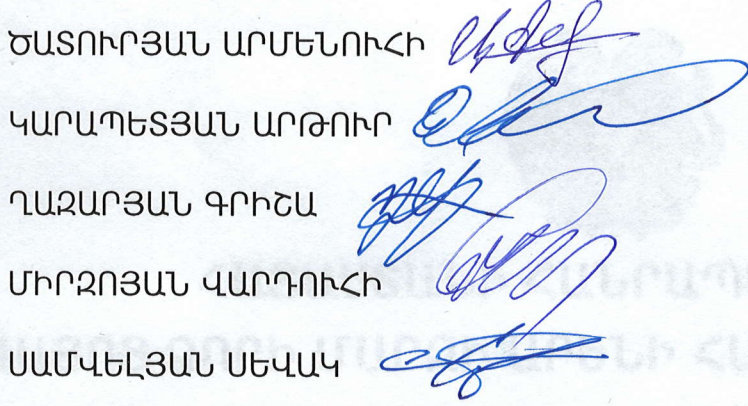 ԾԱՏՈՒՐՅԱՆ ԱՐՄԵՆՈՒՀԻ
ԿԱՐԱՊԵՏՅԱՆ ԱՐԹՈՒՐ
ՂԱԶԱՐՅԱՆ ԳՐԻՇԱ
ՄԻՐԶՈՅԱՆ ՎԱՐԴՈՒՀԻ
ՍԱՄՎԵԼՅԱՆ ՍԵՎԱԿ